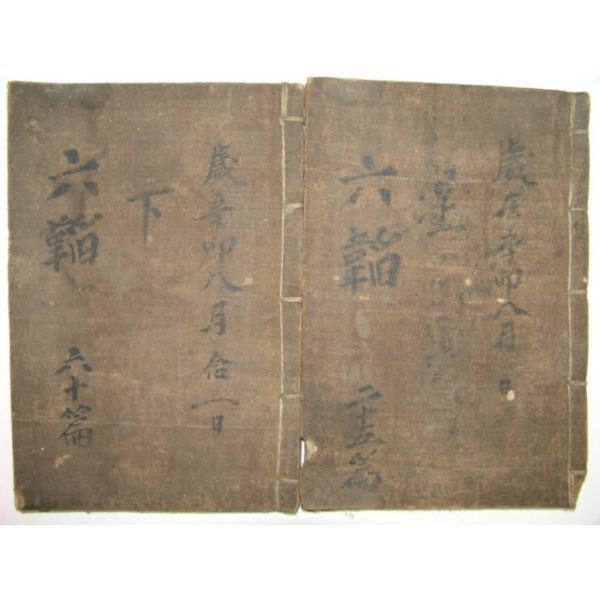 歲在辛卯八月 日
六韜 二十五篇
歲辛卯八月 一日
下
六韜 六十篇